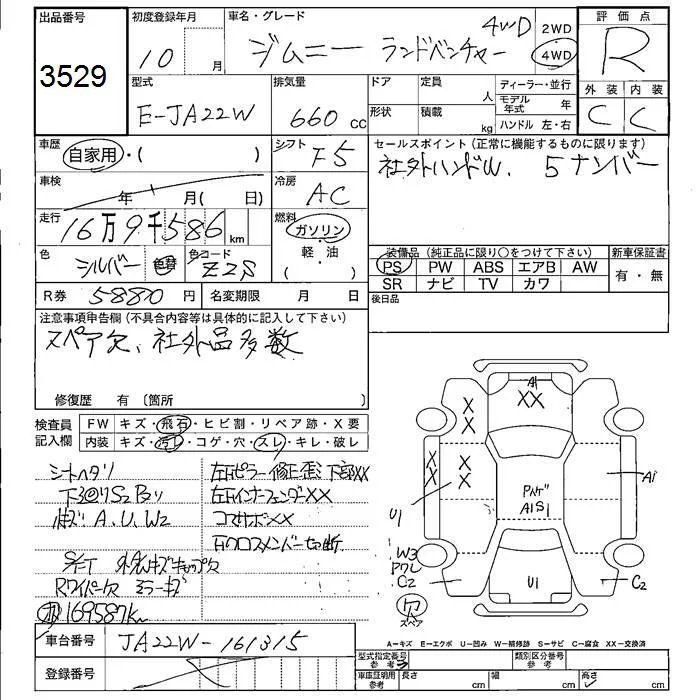 出品番号 初度登録年月 車名・グレード 評価点
3529 10 月 ジムニー ランドベンチャー 4WD 2WD 4WD R
型式 排気量 ドア 定員 人 ディーラー・並行 外装 内装
E-JA22W 660 cc 形状 積載 kg モデル年式 年 ハンドル 左・右 C C
車歴 自家用・( ) シフト F5 セールスポイント(正常に機能するものに限ります)
社外ハンドル. 5ナンバー
車検 年 月( 日) 冷房 AC
走行 16万9千586 km 燃料 ガソリン 軽・油 ( )
装備品(純正品に限り○をつけて下さい) 新車保証書
色 シルバー 色替 色コード Z2S PS PW ABS エアB AW 有・無
SR ナビ TV カワ
R券 5880 円 名変期限 月 日 後日品
注意事項申告欄(不具合内容等は具体的に記入して下さい)
スペア欠、社外品多数
修復歴 有〔箇所
検査員記入欄 FW キズ・飛石・ヒビ割・リペア跡・X要
内装 キズ・汚レ・コゲ・穴・スレ・キレ・破レ
シートヘタリ 左右ピラー修正歪 下部XX
下廻りS2 左右インナーフェンダーXX
A.U.W2 コアサポXX
右クロスメンバー切断
Rワイパー欠 ミラーキズ
169587km
車台番号 JA22W-161315
登録番号
A1
XX
X
X
X
X
X
X
U1
A1
A1S1
W3
C2
U1
C2
スペア
A=キズ E=エクボ U=凹み W=補修跡 S=サビ C=腐食 XX=交換済
型式指定番号 参考 類別区分番号
車庫証明用 参考 長さ cm 幅 cm 高さ cm